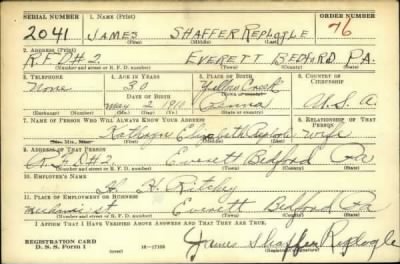 SERIAL NUMBER 1. NAME (Print) ORDER NUMBER
2041 JAMES SHAFFER REPLOGLE 76
(First) (Middle) (Last)
2. ADDRESS (Print)
R.F.D#2. EVERETT BEDFORD PA.
(Number and street or R. F. D. number) (Town) (County) (State)
3. TELEPHONE 4. AGE IN YEARS 5. PLACE OF BIRTH 6. COUNTRY OF CITIZENSHIP
None 30 Yellow Creek
DATE OF BIRTH (Town or county)
May 2 1910 Penna U.S.A.
(Mo.) (Day) (Yr.) (State or country)
7. NAME OF PERSON WHO WILL ALWAYS KNOW YOUR ADDRESS 8. RELATIONSHIP OF THAT PERSON
Elizabeth Replogle wife
(Mr., Mrs., Miss) (First) (Middle) (Last)
9. ADDRESS OF THAT PERSON
R.F.D#2 Everett Bedford Pa
(Number and street or R. F. D. number) (Town) (County) (State)
10. EMPLOYER'S NAME
H. H. Ritchey
11. PLACE OF EMPLOYMENT OR BUSINESS
Mechanic St Everett Bedford Pa
(Number and street or R. F. D. number) (Town) (County) (State)
I AFFIRM THAT I HAVE VERIFIED ABOVE ANSWERS AND THAT THEY ARE TRUE.
REGISTRATION CARD
D. S. S. Form 1 16—17105 James Shaffer Replogle
(Registrant's signature)